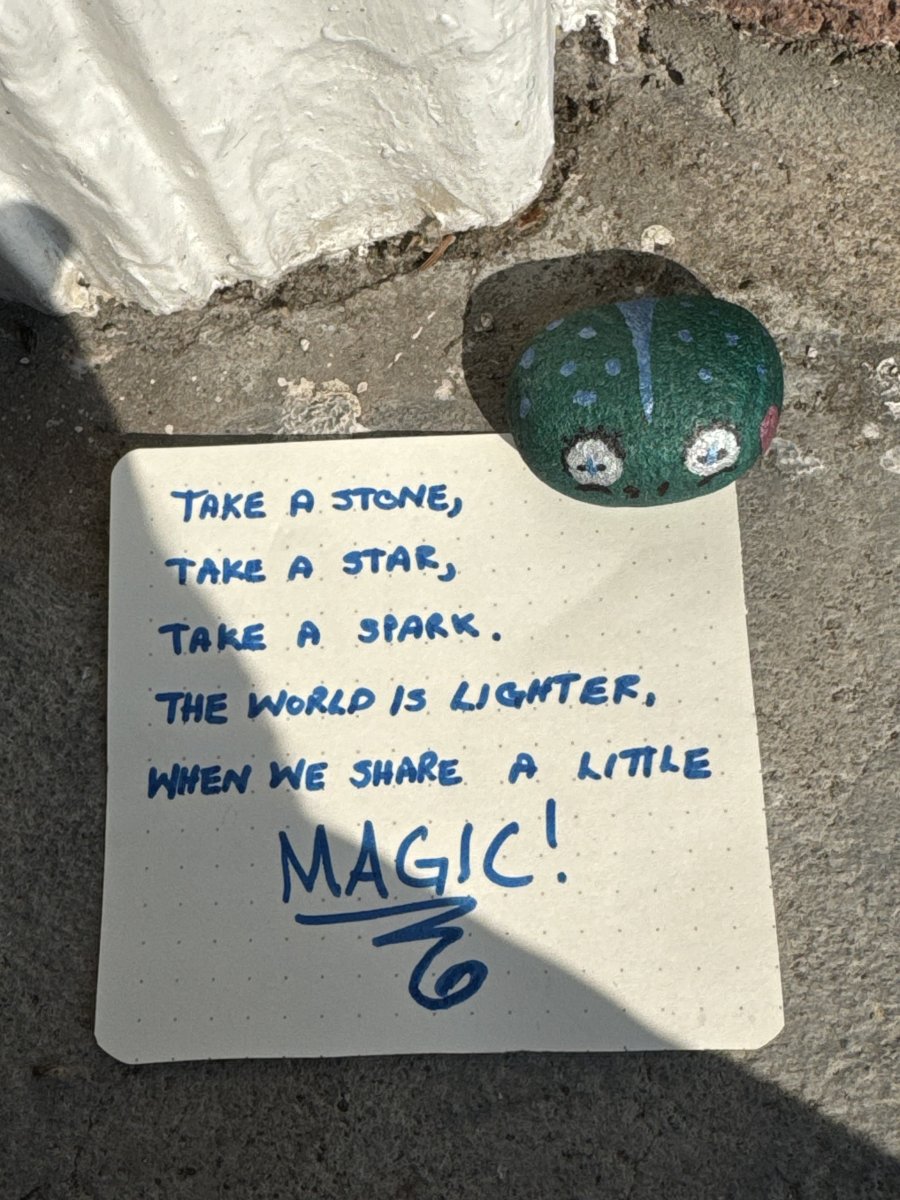 TAKE A STONE,
TAKE A STAR,
TAKE A SPARK.
THE WORLD IS LIGHTER,
WHEN WE SHARE A LITTLE
MAGIC!